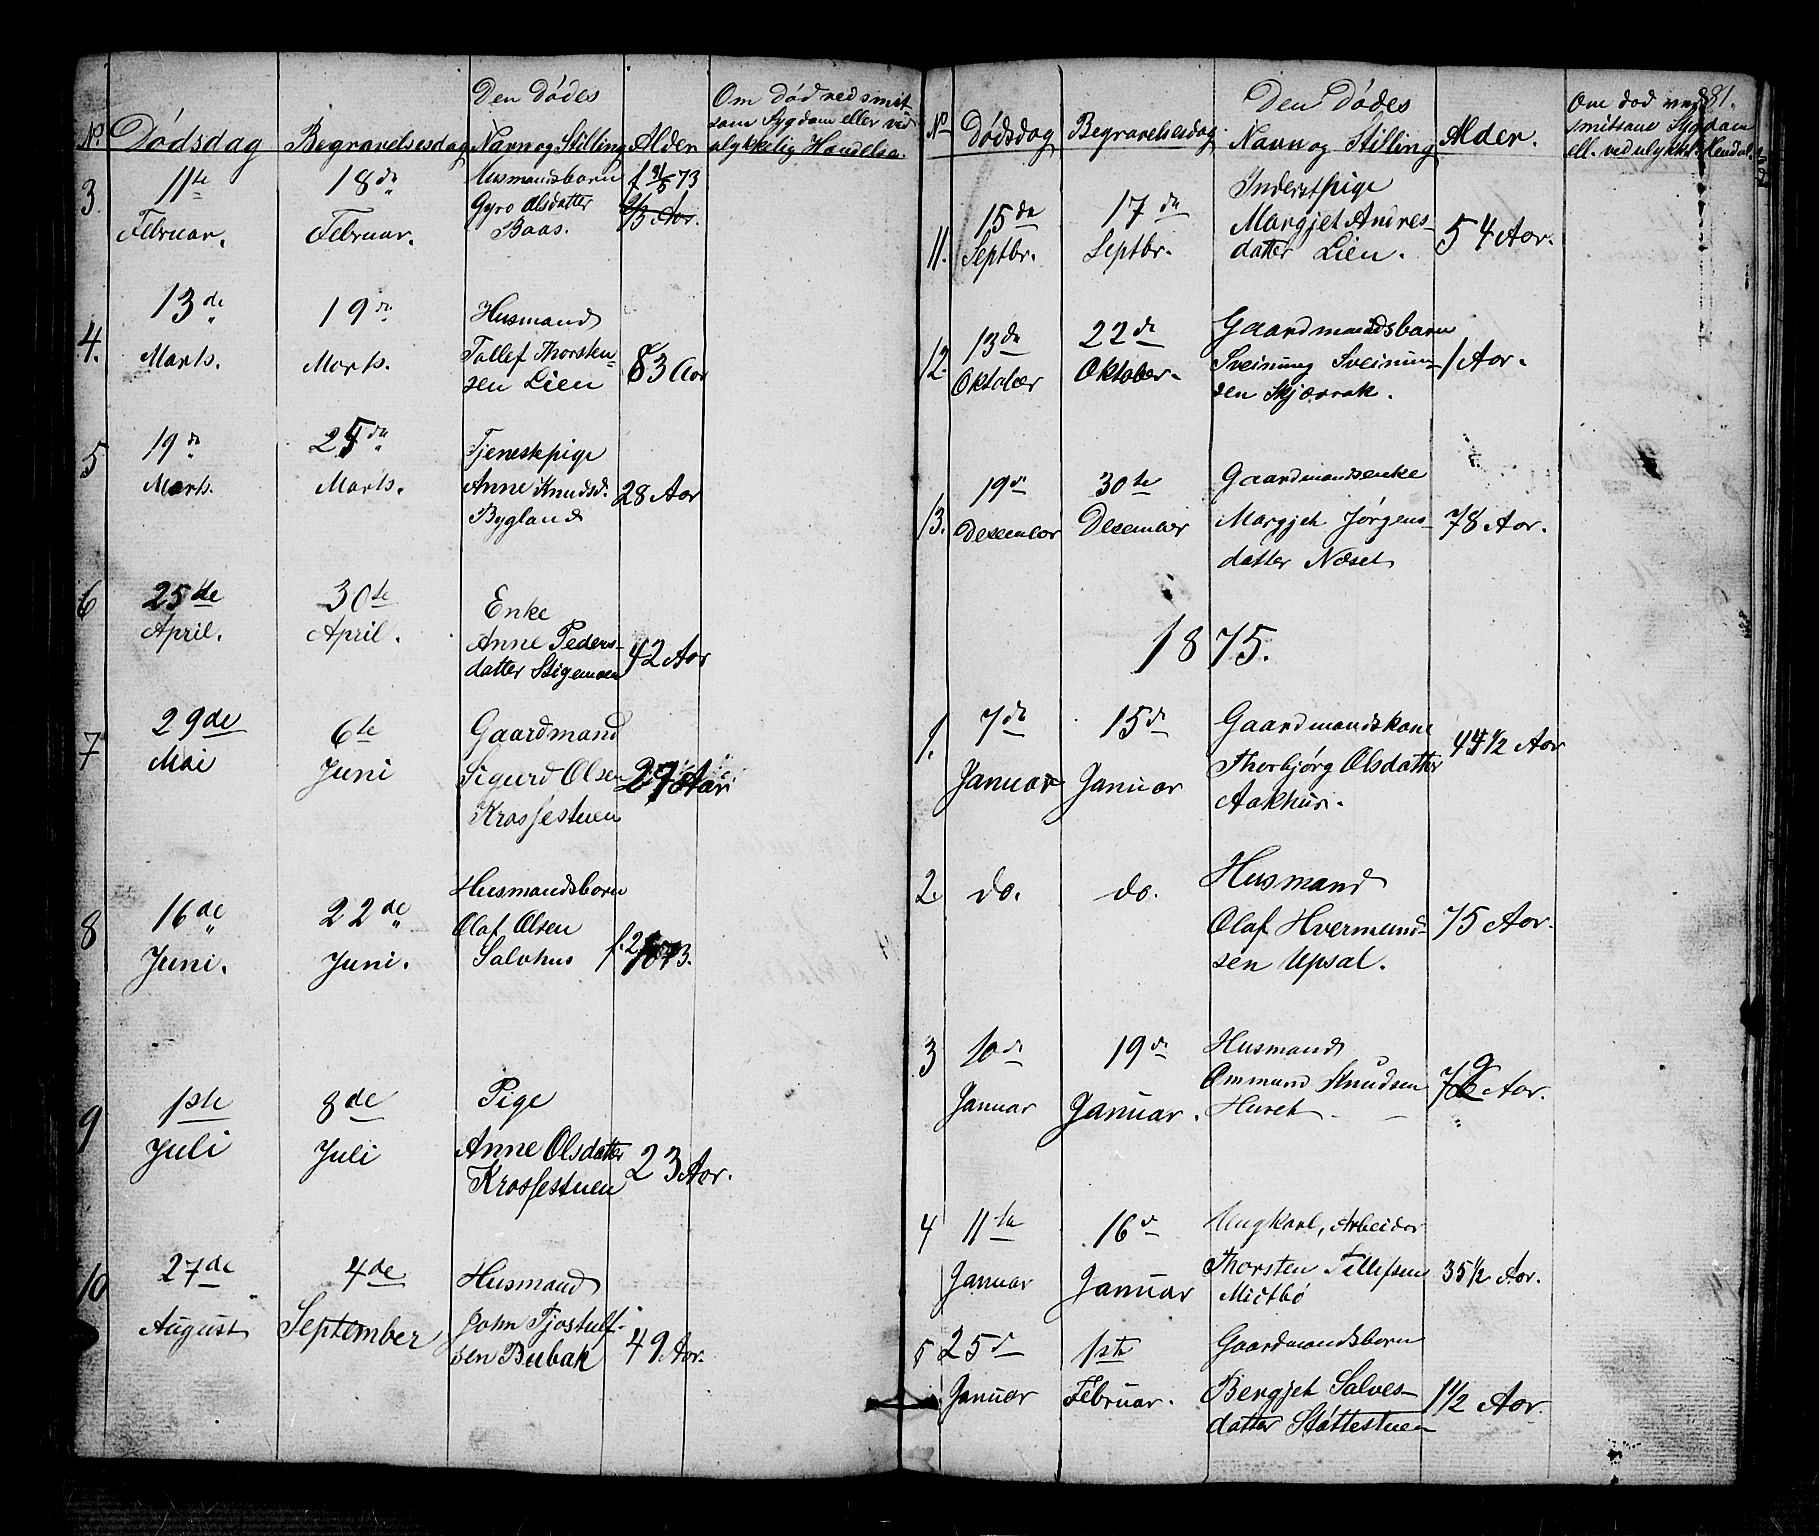 Den Dødes
Om Død ved smit
som Sygdom eller ved
No. Dødsdag Begravelsesdag Navn og Stilling Alder ulykkelig Hændelse.
3. 11te 18de Husmandsbarn f. 31/5 73
Februar. Februar. Gyro Olsdatter 2/3 Aar.
Baas.
4. 13de 19de Husmand
Marts. Marts. Tollef Thorsten-
sen Lien 83 Aar
5 19de 25de Tjenestpige
Marts. Marts. Anne Knudsd. 28 Aar
Bygland
6 25de 30te Enke
April. April. Anne Peders-
datter Stigemoen 42 Aar
7 29de 6te Gaardmand
Mai Juni Sigurd Olsen 27 Aar.
Krossestuen
8 16de 22de Husmandsbarn
Juni. Juni. Olaf Olsen
Salvhus
9 1ste 8de Pige
Juli Juli Anne Olsdatter 23 Aar.
Krossestuen
10 27de 4de Husmand
August September John Tjostulf-
sen Bubak 49 Aar.
81.
Den Dødes
Om død ved
smitsom Sygdom
No Dødsdag Begravelsesdag. Navn og Stilling Alder. ell. ved ulykkel. Hendel.
11. 15de 17de Inderstpige
Septbr. Septbr. Margjet Andres-
datter Lien. 54 Aar.
12. 13de 22de Gaardmandsbarn
Oktober Oktober. Sveinung Sveinun- 1 Aar.
sen Skjævrak.
13. 19de 30te Gaardmandsenke
Desember Desember Margjet Jørgens- 78 Aar.
datter Næset
1875.
1. 7de 15de Gaardmandskone
Januar Januar Thorbjørg Olsdatter 44 1/2 Aar
Aakhus.
2. do. do. Husmand
Olaf Hvermund- 75 Aar.
sen Upsal.
3 10de 19de Husmand
Januar Januar. Ommund Knudsen 79 Aar.
Huset
4 11te 16de Ungkarl, Arbeider
Januar Januar Thorsten Tellefsen 35 1/2 Aar.
Midtbø
5 25de 1ste Gaardmandsbarn
Januar Februar. Bergjet Salves- 1 1/2 Aar.
datter Støttestuen